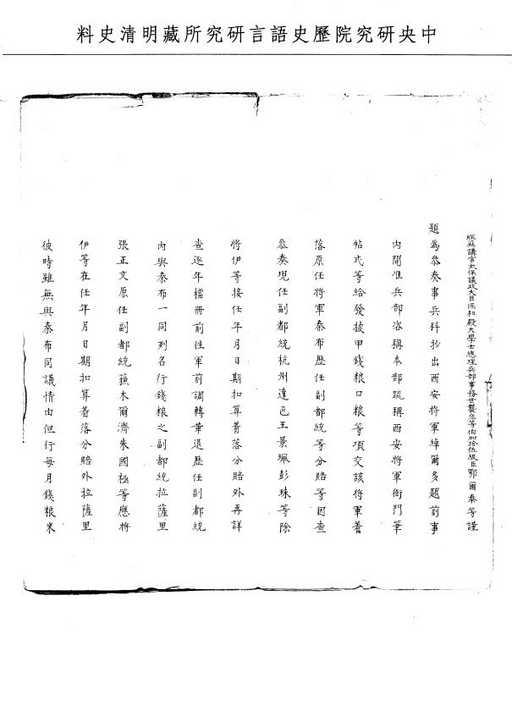 中央研究院歷史語言研究所藏明清史料
經筵講官太保議政大臣保和殿大學士總理兵部事務世襲三等伯加拾伍級臣鄂爾泰等謹
題為參奏事兵科抄出西安將軍綽爾多題前事
內開准兵部咨稱本部疏稱西安將軍衙門筆
帖式等給發披甲錢粮口粮等項交該將軍着
落原任將軍泰布歷任副都統等分賠等因查
參奏現任副都統杭州達色王景珮彭珠等除
將伊等接任年月日期扣算著落分賠外再詳
查逐年檔冊前往軍前調轉華退歷任副都統
內與泰布一同列名行錢粮之副都統拉薩里
張正文原任副都統蘓木爾濟朱國極等應將
伊等在任年月日期扣算著落分賠外拉薩里
彼時雖無與泰布同議情由但行每月錢粮米